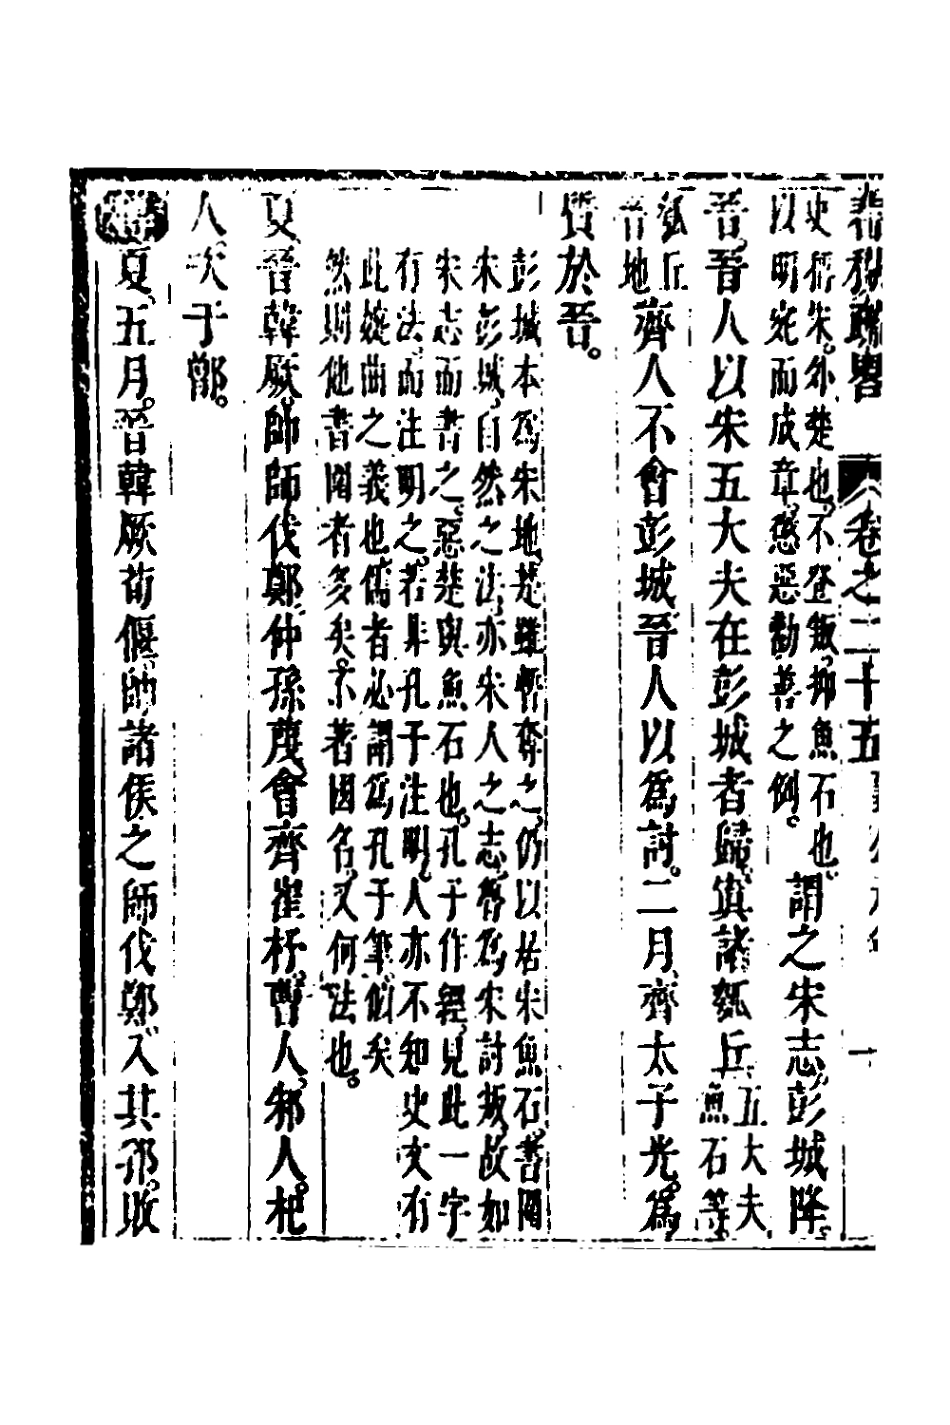 春秋疏畧 卷之二十五 襄公元年 一
史稱宋。外楚也。不登叛。抑魚石也。
以明宛而成章。懲惡勸善之例。
謂之宋志。彭城降
晉。晉人以宋五大夫在彭城者歸。寘諸瓠丘
五大夫
魚石等
瓠丘
晉地
齊人不會彭城晉人以爲討。二月齊太子光。爲
質於晉。
彭城本爲宋地。楚雖暫奪之。仍以居宋魚石。書圍
宋彭城。自然之法。亦宋人之志。魯爲宋討叛。故如
宋志而書之。惡楚與魚石也。孔子作經。見此一字
有法。而注明之。若非孔子注明。人亦不知史文有
此婉曲之義也。儒者必謂爲孔子筆削矣
然則他書圍者多矣。不著國名。又何法也。
夏晉韓厥。師師伐鄭仲孫蔑會齊崔杼。曹人。邾人。杞
人次于鄫。
傳夏。五月。晉韓厥荀偃。帥諸侯之師伐鄭。入其郛。敗